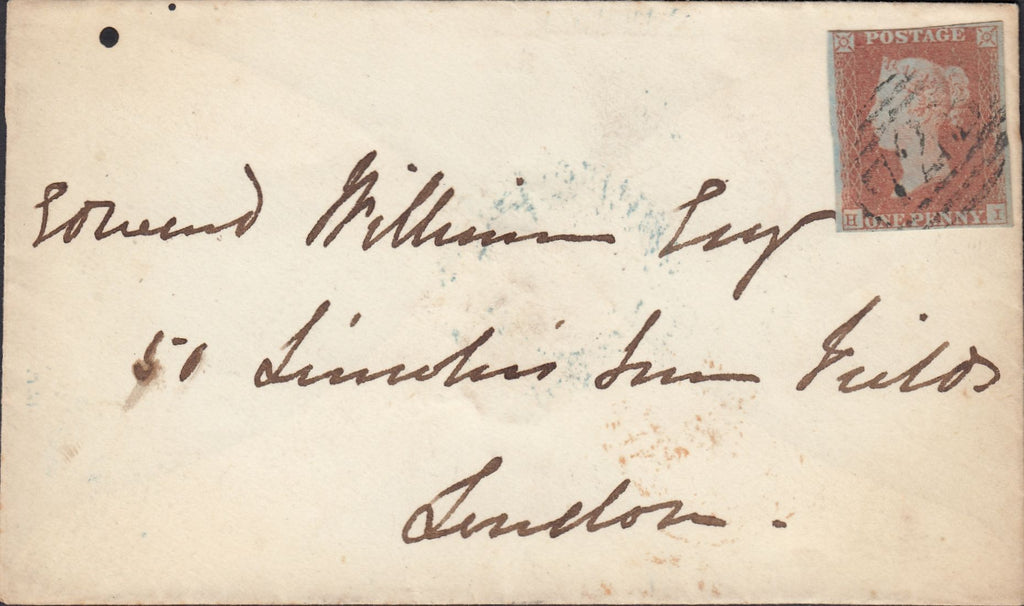 POSTAGE
H ONE PENNY I
Edward William Esq
50 Lincolns Inn Fields
London.